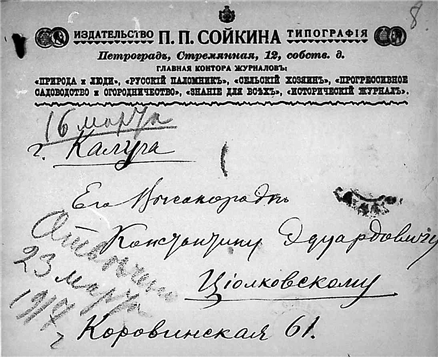 8
ИЗДАТЕЛЬСТВО П. П. СОЙКИНА ТИПОГРАФІЯ
Петроградъ, Стремянная, 12, собств. д.
ГЛАВНАЯ КОНТОРА ЖУРНАЛОВЪ:
«ПРИРОДА и ЛЮДИ», «РУССКІЙ ПАЛОМНИКЪ», «СЕЛЬСКІЙ ХОЗЯИНЪ», «ПРОГРЕССИВНОЕ
САДОВОДСТВО и ОГОРОДНИЧЕСТВО», «ЗНАНІЕ ДЛЯ ВСѢХЪ», «ИСТОРИЧЕСКІЙ ЖУРНАЛЪ».
16 марта
г. Калуга
Его
Константину Эдуардовичу
Ціолковскому
Коровинская 61.
Отвечено
23 марта
1917 г